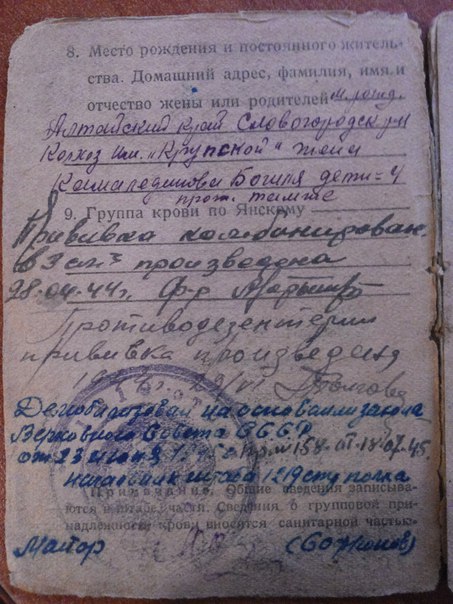 8. Место рождения и постоянного житель-
ства. Домашний адрес, фамилия, имя и
отчество жены или родителей м. рожд.
Алтайский край Словогородск р-н
Колхоз им. „Крупской" жена
Камалединова Богиля дети=4
прож. тамже
9. Группа крови по Янскому
Прививка комбинирован.
в 3 см³ произведена
28.04.44г. Ф-р
Противодезентерии
прививка произведена
Демобилизован на основании закона
Верховного Совета СССР
от 23 июня 1945 158 от 18.07.45.
Начальник штаба 1219 стр полка
Примечание. Общие сведения записыва-
ются в штабе части. Сведения о групповой при-
надлежности крови вносятся санитарной частью
Майор